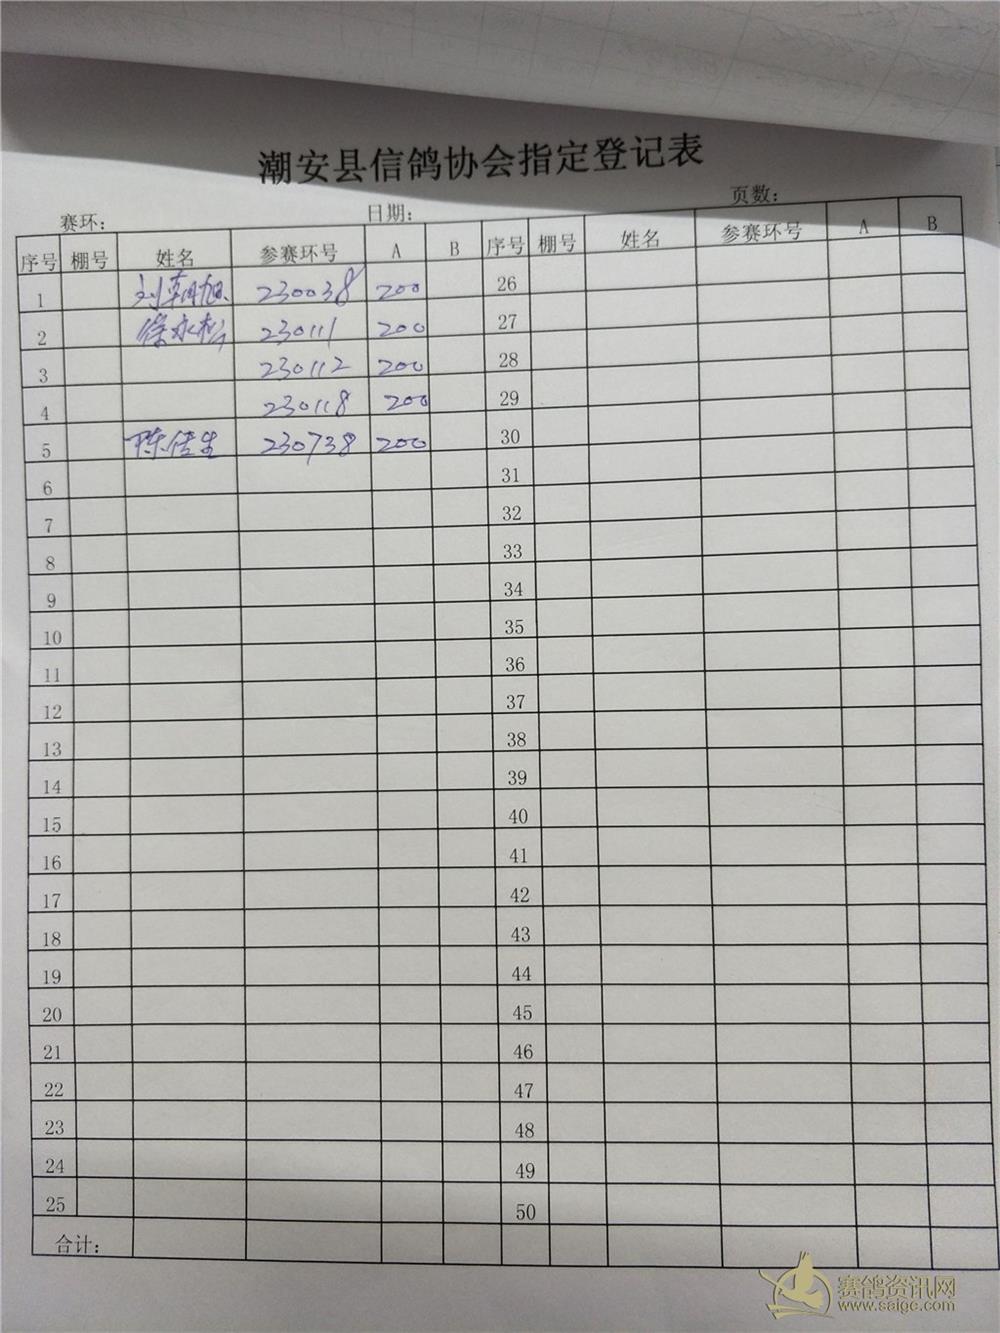 潮安县信鸽协会指定登记表
赛环： 日期： 页数：
序号 棚号 姓名 参赛环号 A B 序号 棚号 姓名 参赛环号 A B
1 刘朝旭 230038 200 26
2 徐水松 230111 200 27
3 230112 200 28
4 230118 200 29
5 陈佳生 230738 200 30
6 31
7 32
8 33
9 34
10 35
11 36
12 37
13 38
14 39
15 40
16 41
17 42
18 43
19 44
20 45
21 46
22 47
23 48
24 49
25 50
合计：
赛鸽资讯网
www.saigc.com